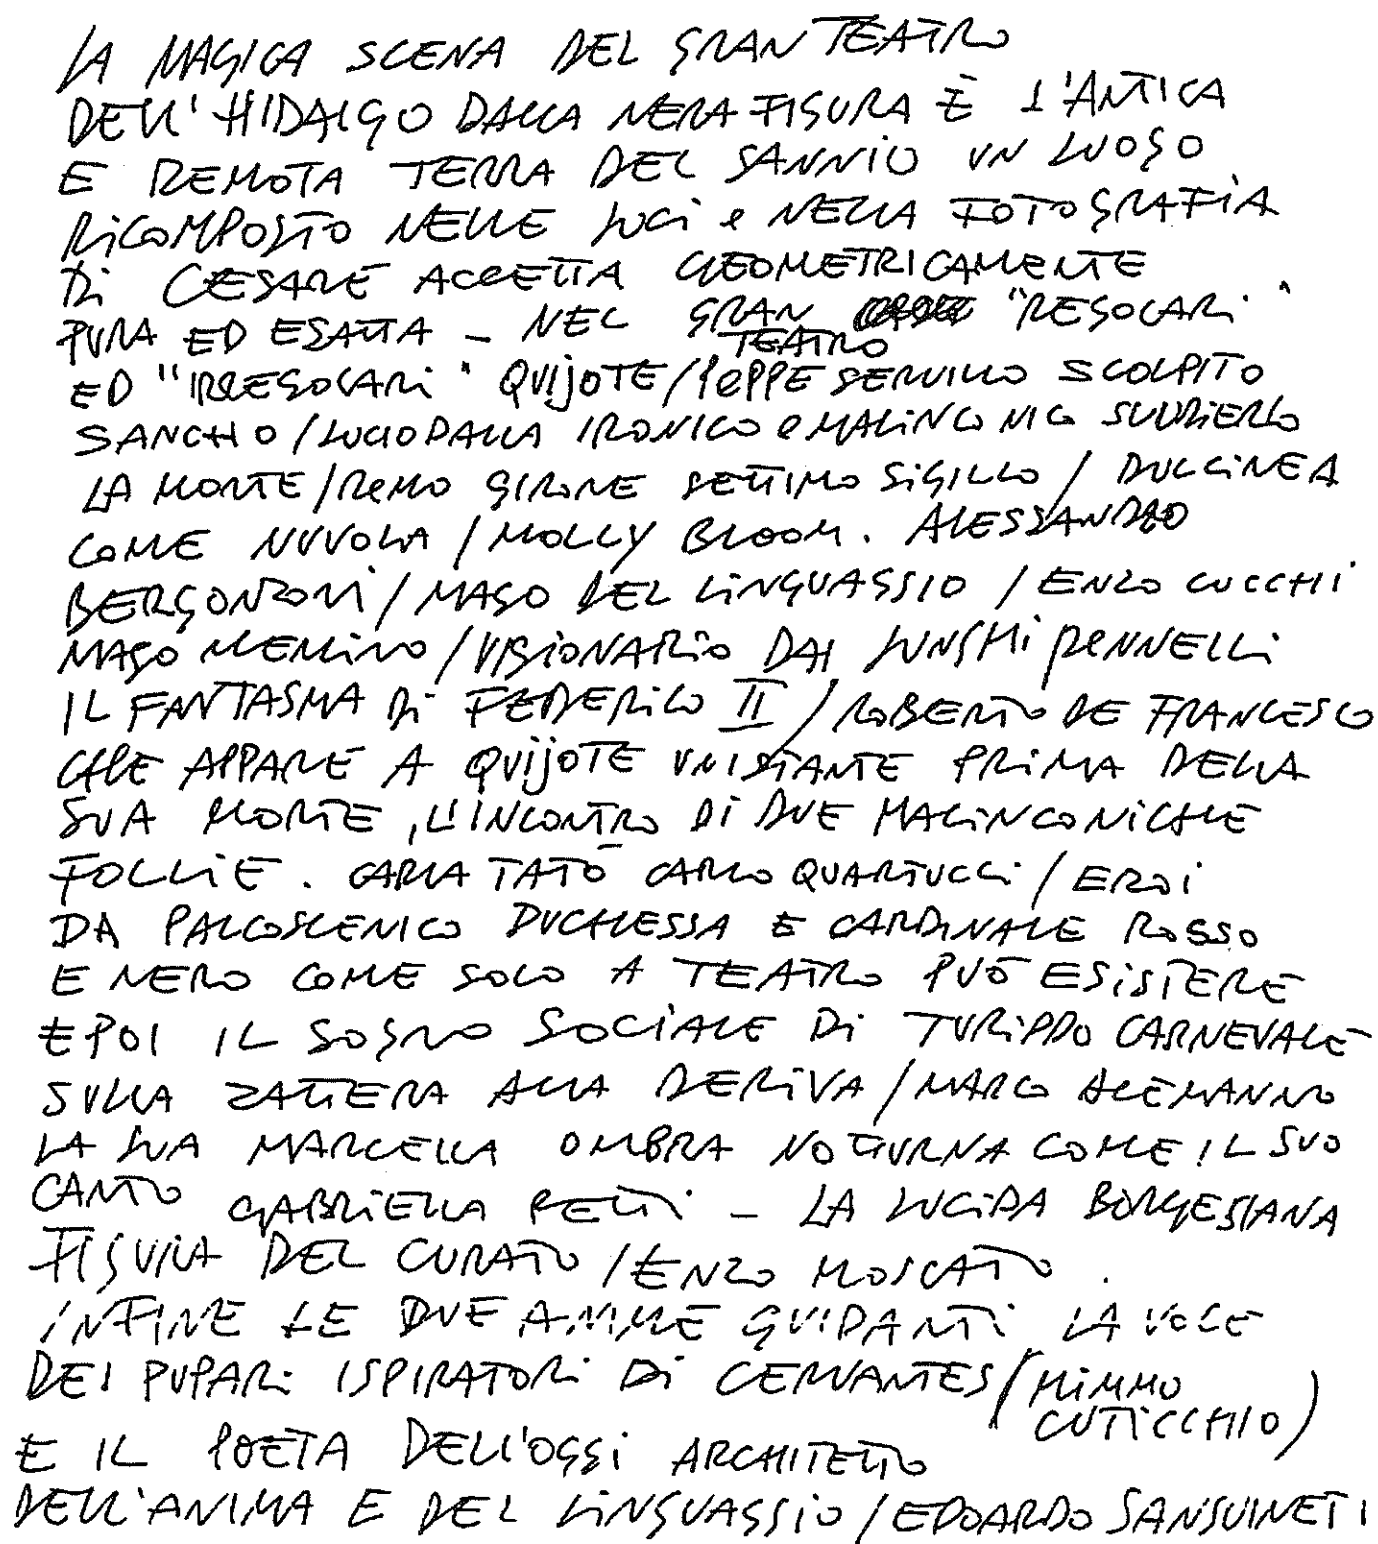 LA MAGICA SCENA DEL GRAN TEATRO
DELL'HIDALGO DALLA NERA FIGURA È L'ANTICA
E REMOTA TERRA DEL SANNIO UN LUOGO
RICOMPOSTO NELLE LUCI e NELLA FOTOGRAFIA
DI CESARE ACCETTA GEOMETRICAMENTE
PURA ED ESATTA - NEL GRAN TEATRO "REGOLARI"
ED "IRREGOLARI" QUIJOTE/PEPPE SERVILLO SCOLPITO
SANCHO/LUCIO DALLA IRONICO e MALINCONICO SCUDIERO
LA MORTE/REMO GIRONE SETTIMO SIGILLO/DULCINEA
COME NUVOLA/MOLLY BLOOM. ALESSANDRO
BERGONZONI/MAGO DEL LINGUAGGIO/ENZO CUCCHI
MAGO MERLINO/VISIONARIO DAI LUNGHI PENNELLI
IL FANTASMA DI FEDERICO II/ROBERTO DE FRANCESCO
CHE APPARE A QUIJOTE UN ISTANTE PRIMA DELLA
SUA MORTE, L'INCONTRO DI DUE MALINCONICHE
FOLLIE. CARLA TATÒ CARLO QUARTUCCI/EROI
DA PALCOSCENICO DUCHESSA E CARDINALE ROSSO
E NERO COME SOLO A TEATRO PUÒ ESISTERE
E POI IL SOGNO SOCIALE DI TURIDDO CARNEVALE
SULLA ZATTERA ALLA DERIVA/MARCO ALEMANNO
LA SUA MARCELLA OMBRA NOTTURNA COME IL SUO
CANTO GABRIELLA - LA LUCIDA BORGESIANA
FIGURA DEL CURATO/ENZO MOSCATO.
INFINE LE DUE ANIME GUIDANTI LA VOCE
DEI PUPARI ISPIRATORI DI CERVANTES/(MIMMO
CUTICCHIO)
E IL POETA DELL'OGGI ARCHITETTO
DELL'ANIMA E DEL LINGUAGGIO/EDOARDO SANGUINETI